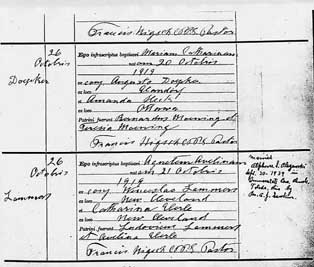 Francis Nigsch C.PP.S. Pastor
26
Octobris
Doepker
Ego infrascriptus baptizavi Mariam Catharinam
nat em 20 Octobris
1919
ex conj. Augusto Doepker
ex loco Glandorf
et Amanda Recker
ex loco Ottawa
Patrini fuerunt Bernardus Moening et
Teresia Moening
Francis Nigsch C.PP.S. Pastor
26
Octobris
Lammers
Ego infrascriptus baptizavi Agnetem Avelinam
21 Octobris
1919
ex conj. Winceslas Lammers
ex loco New Cleveland
et Catharina Eberle
ex loco New Cleveland
Patrini fuerunt Ludovicus Lammers
et Avelina Eberle
Francis Nigsch C.PP.S. Pastor
Married
Sept. 30-1939 in
Toledo, Ohio by